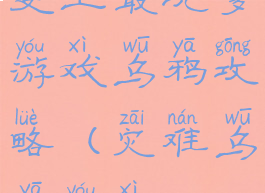 yóu xì wū yā gōng
游戏乌鸦攻
lüè zāi nán wū
略（灾难乌
yā yóu xì